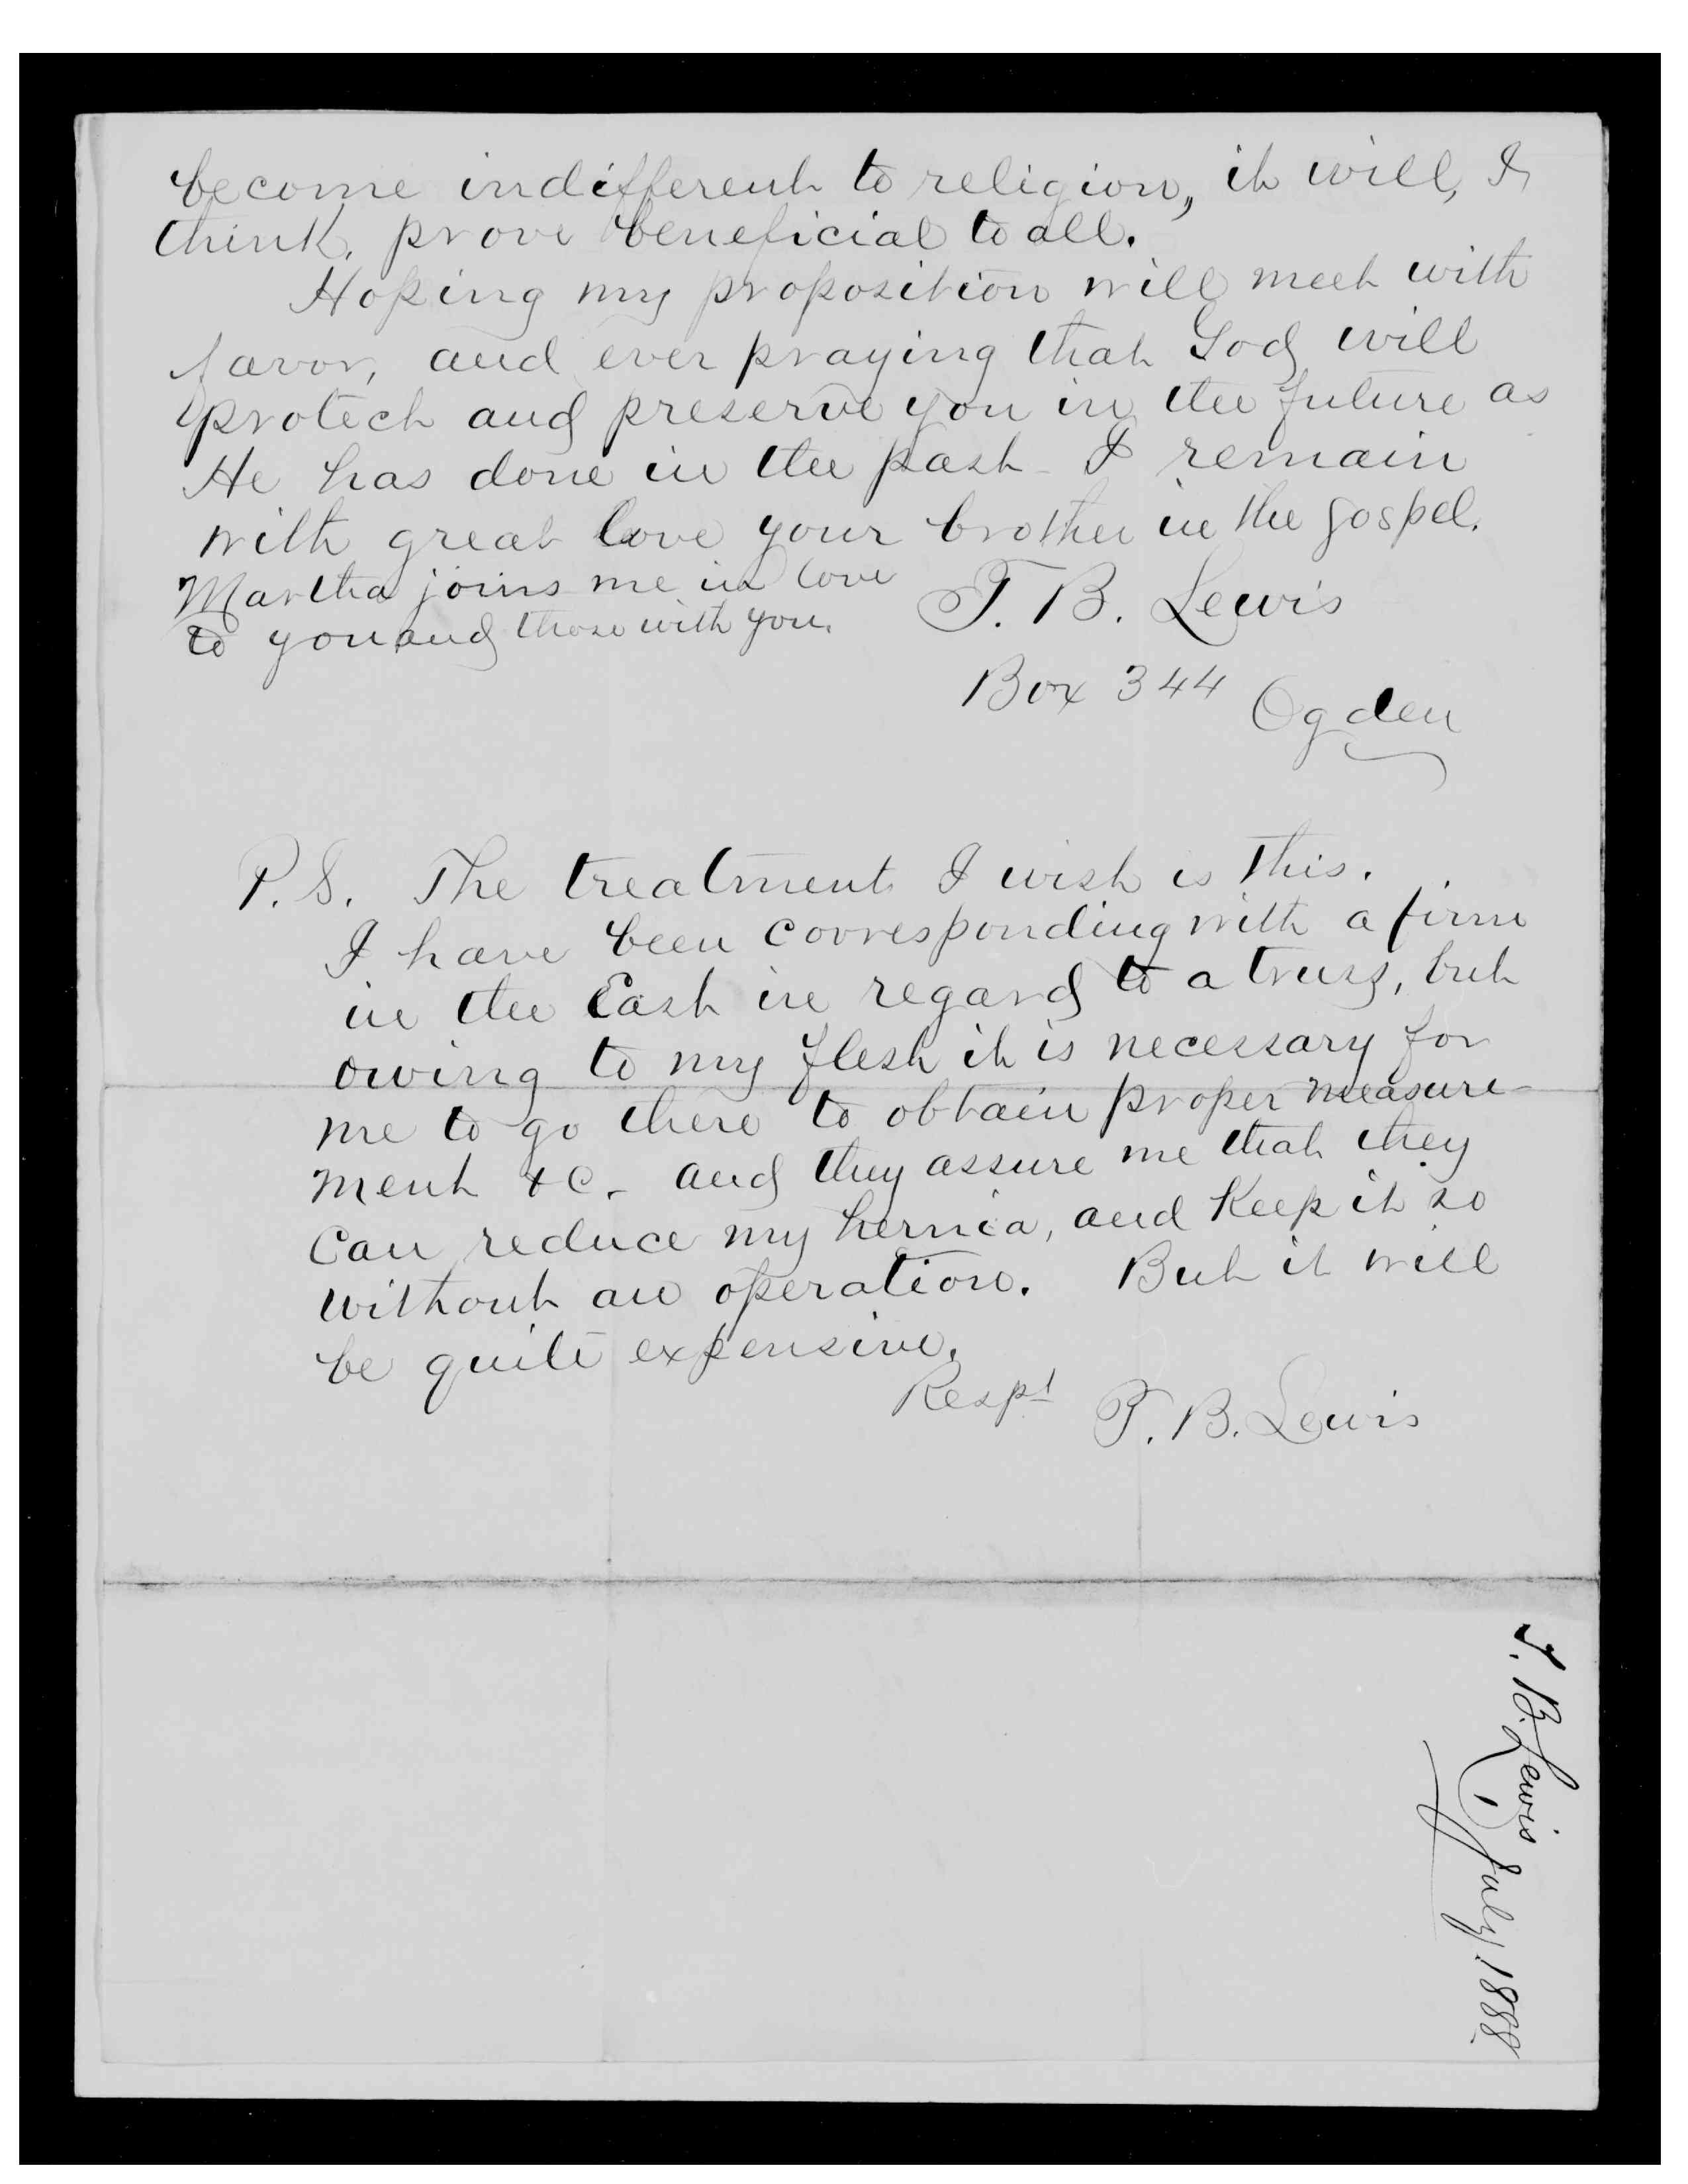 become indifferent to religion, it will, I
think, prove beneficial to all.
Hoping my proposition will meet with
favor, and ever praying that God will
protect and preserve you in the future as
He has done in the past I remain
with great love your brother in the gospel.
Martha joins me in love
to you and those with you.
T. B. Lewis
Box 344 Ogden
P.S. The treatment I wish is this.
I have been corresponding with a firm
in the East in regard to a truss, but
owing to my flesh it is necessary for
me to go there to obtain proper measure-
ment &c. and they assure me that they
can reduce my hernia, and keep it so
without an operation. But it will
be quite expensive.
Respt T. B. Lewis
T. B. Lewis
July 1888